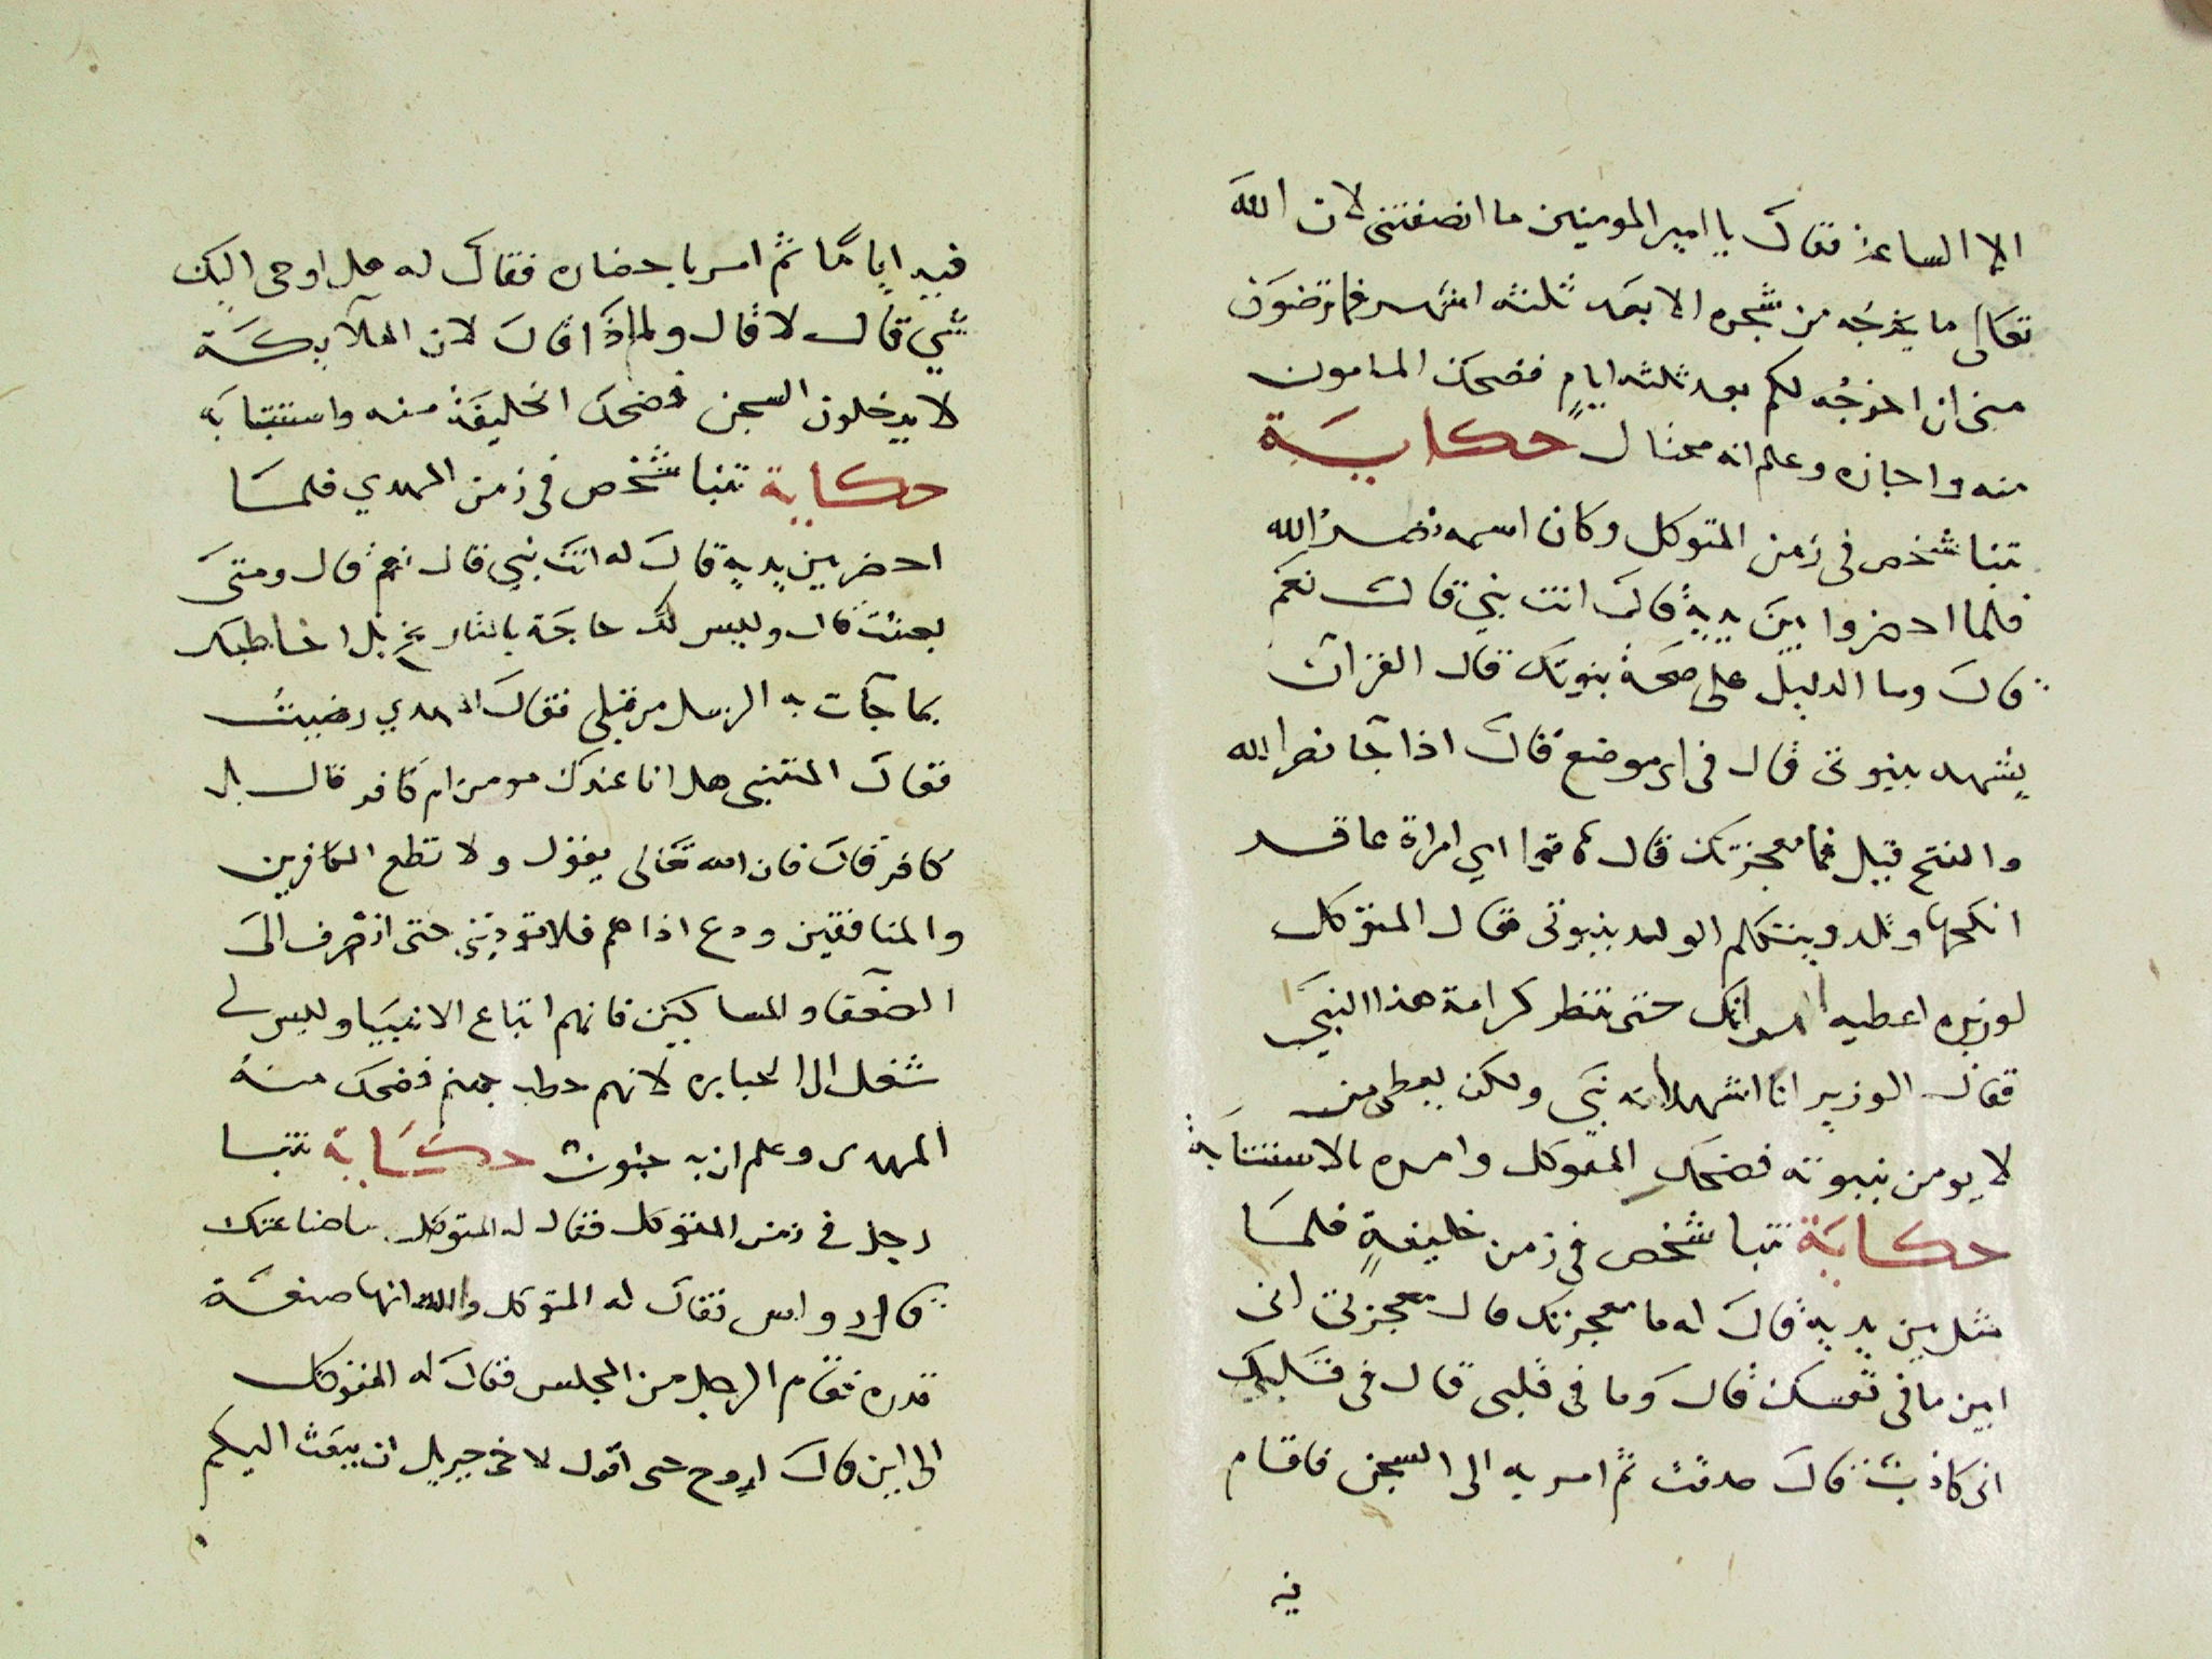 الا الساعة فقال يا امير المومنين ما انصفتنى لان الله
تعالى ما يخرجه من شجره الا بعد ثلثه اشهر فما ترضون
منى ان اخرجه لكم بعد ثلثه ايام فضحك المامون
منه واجازه وعلم انه محتال حكاية
تنبا شخص فى زمن المتوكل وكان اسمه نصر الله
فلما احضروا بين يديه قال انت نبي قال نعم
قال وما الدليل على صحة بنوتك قال القران
يشهد بنبوتى قال فى اى موضع قال اذا جا نصر الله
والفتح قيل فما معجزتك قال امراة عاقر
انكحها وتلد ويتكلم الولد بنبوتى فقال المتوكل
لوزيره اعطيه امراتك حتى تنظر كرامة هذا النبي
فقال الوزير انا اشهد انه نبي ولكن يعطى من
لا يومن بنبوته فضحك المتوكل وامره بالاستتابة
حكاية تنبا شخص فى زمن خليفة فلما
مثل بين يديه قال له ما معجزتك قال معجزتى انى
ابين ما فى نفسك قال وما فى قلبى قال فى قلبك
انى كاذب قال صدقت ثم امر به الى السجن فاقام
فيه
فيه اياما ثم امر باحضاره فقال له هل اوحى اليك
شي قال لا قال ولماذا قال لان الملآيكة
لا يدخلون السجن فضحك الخليفة منه واستتابه
حكاية تنبا شخص فى زمن المهدي فلما
احضر بين يديه قال له انت نبي قال نعم قال ومتى
بعثت قال وليس لك حاجة بالتاريخ بل اخاطبك
بما جآت به الرسل من قبلى فقال المهدي رضيت
فقال المتنبى هل انا عندك مومن ام كافر قال بل
كافر قال فان الله تعالى يقول ولا تطع الكافرين
والمنافقين ودع اذاهم فلا توذينى حتى انصرف الى
الضعفا والمساكين فانهم اتباع الانبيا وليس لى
شغل الى الجبابره لانهم حطب جهنم فضحك منه
المهدى وعلم ان به جنون حكاية تنبا
رجل فى زمن المتوكل فقال له المتوكل ما صناعتك
قال رواس فقال له المتوكل والله انها صنعة
قدره فقام الرجل من المجلس فقال له المتوكل
الى اين قال اروح حتى اقول لاخى جبريل ان يبعث اليكم